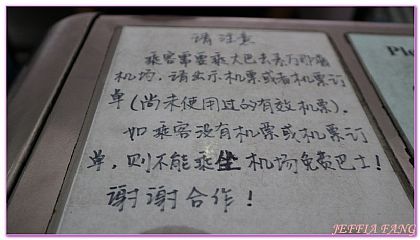 请注意
乘客需要乘大巴去苏万那普
机场，请出示机票或者机票订
单（尚未使用过的有效机票）.
如乘客没有机票或机票订
单，则不能乘坐机场免费巴士！
谢谢合作！
JEFFIA FANG